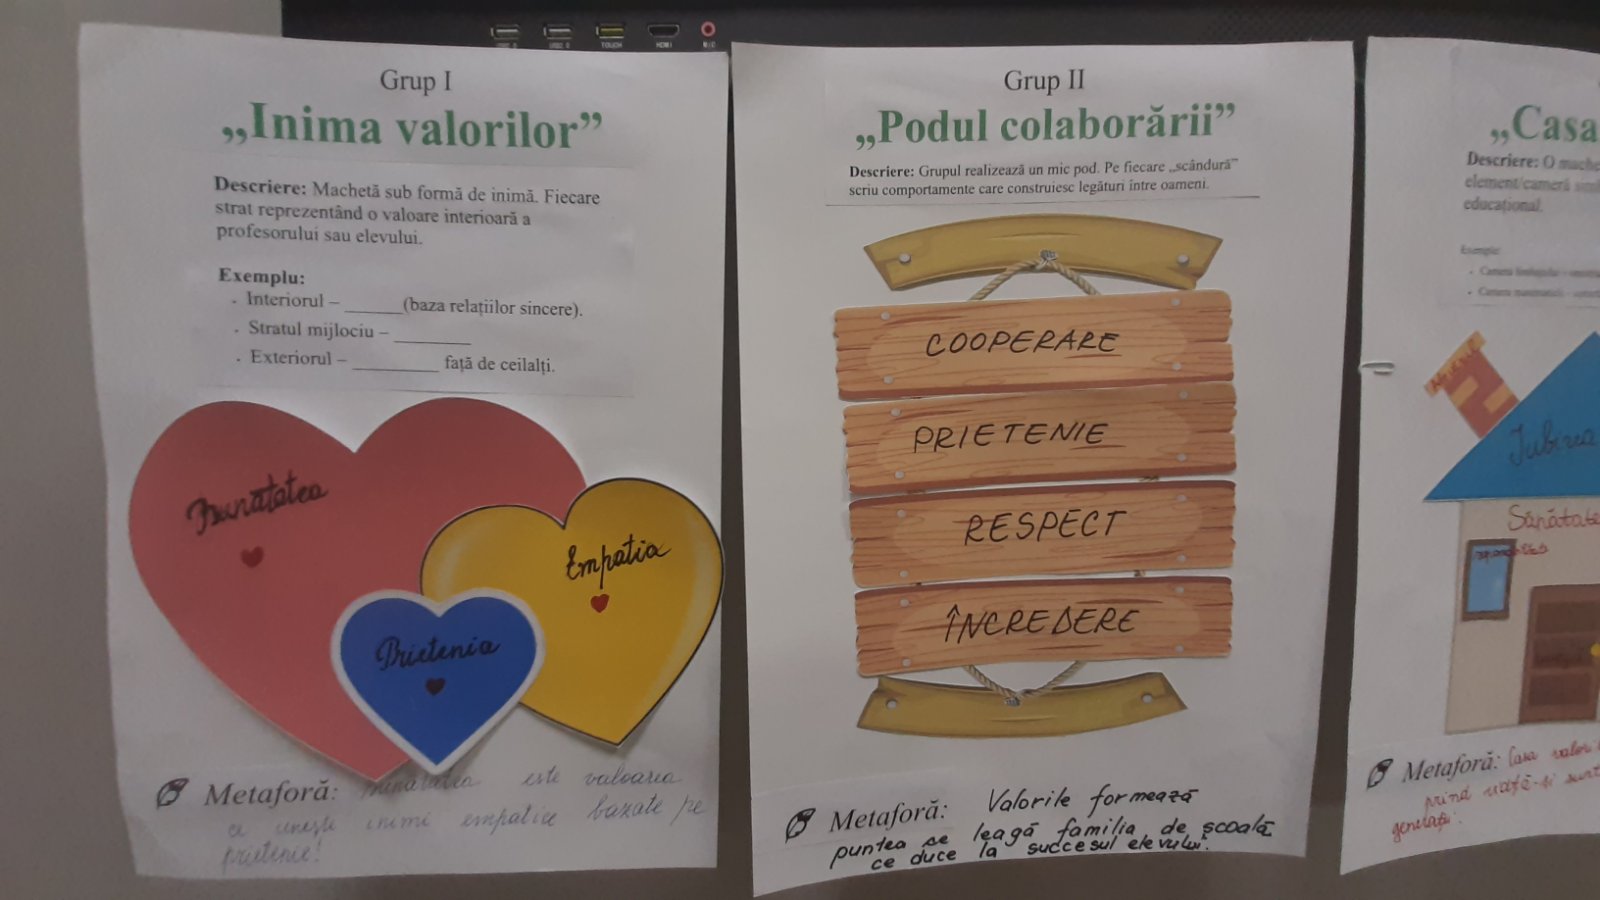 TOUCH
HDMI
Grup I
„Inima valorilor”
Descriere: Machetă sub formă de inimă. Fiecare
strat reprezentând o valoare interioară a
profesorului sau elevului.
Exemplu:
. Interiorul – ______(baza relațiilor sincere).
. Stratul mijlociu – ________
. Exteriorul – _________ față de ceilalți.
Bunătatea
Empatia
Prietenia
Metaforă: Bunătatea este valoarea
ce unește inimi empatice bazate pe
prietenie!
Grup II
„Podul colaborării”
Descriere: Grupul realizează un mic pod. Pe fiecare „scândură”
scriu comportamente care construiesc legături între oameni.
COOPERARE
PRIETENIE
RESPECT
ÎNCREDERE
Metaforă: Valorile formează
puntea ce leagă familia de școală
ce duce la succesul elevului.
„Casa
Descriere: O mache
element/cameră simb
educațional.
Exemplu:
Iubirea
Sănătate
Metaforă: Casa valori
prind viață și sunt
generații.